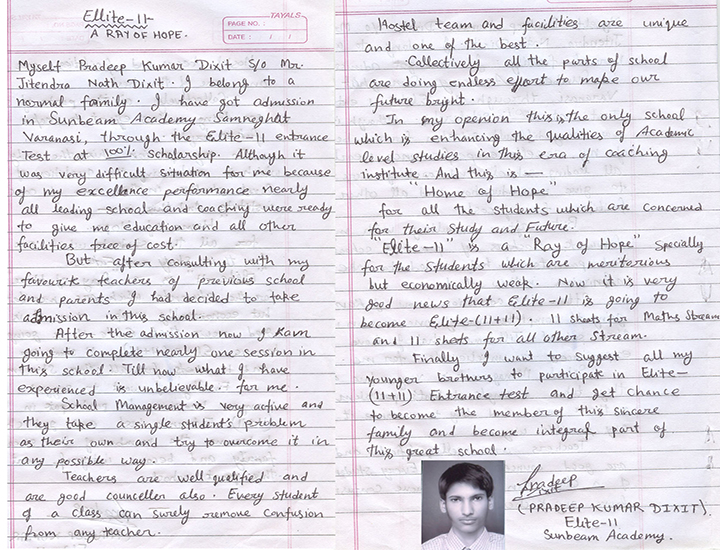 Ellite-11-
A RAY OF HOPE.
TAYALS
PAGE NO. :
DATE : / /
Myself Pradeep Kumar Dixit S/o Mr.
Jitendra Nath Dixit. I belong to a
normal family. I have got admission
in Sunbeam Academy Samneghat
Varanasi, through the Elite-11 entrance
Test at 100% scholarship. Although it
was very difficult situation for me because
of my excellence performance nearly
all leading school and coaching were ready
to give me education and all other
facilities free of cost.
But after consulting with my
favourite teachers of previous school
and parents I had decided to take
admission in this school.
After the admission now I am
going to complete nearly one session in
this school. Till now what I have
experienced is unbelievable for me.
School Management is very active and
they take a single student's problem
as their own and try to overcome it in
any possible way.
Teachers are well qualified and
are good counceller also. Every student
of a class can surely remove confusion
from any teacher.
Hostel team and facilities are unique
and one of the best.
Collectively all the parts of school
are doing endless effort to make our
future bright.
In my openion this is the only school
which is enhancing the qualities of Academic
level studies in this era of coaching
institute And this is —
"Home of Hope"
for all the students which are concerned
for their Study and Future.
"Elite-11" is a "Ray of Hope" Specially
for the students which are meritorious
but economically weak. Now it is very
good news that Elite-11 is going to
become Elite-(11+11). 11 sheats for Maths Stream
and 11 sheats for all other Stream.
Finally I want to suggest all my
younger brothers to participate in Elite-
(11+11) Entrance test and get chance
to become the member of this sincere
family and become integral part of
this great school.
Pradeep
Dixit
(PRADEEP KUMAR DIXIT).
Elite-11
Sunbeam Academy.